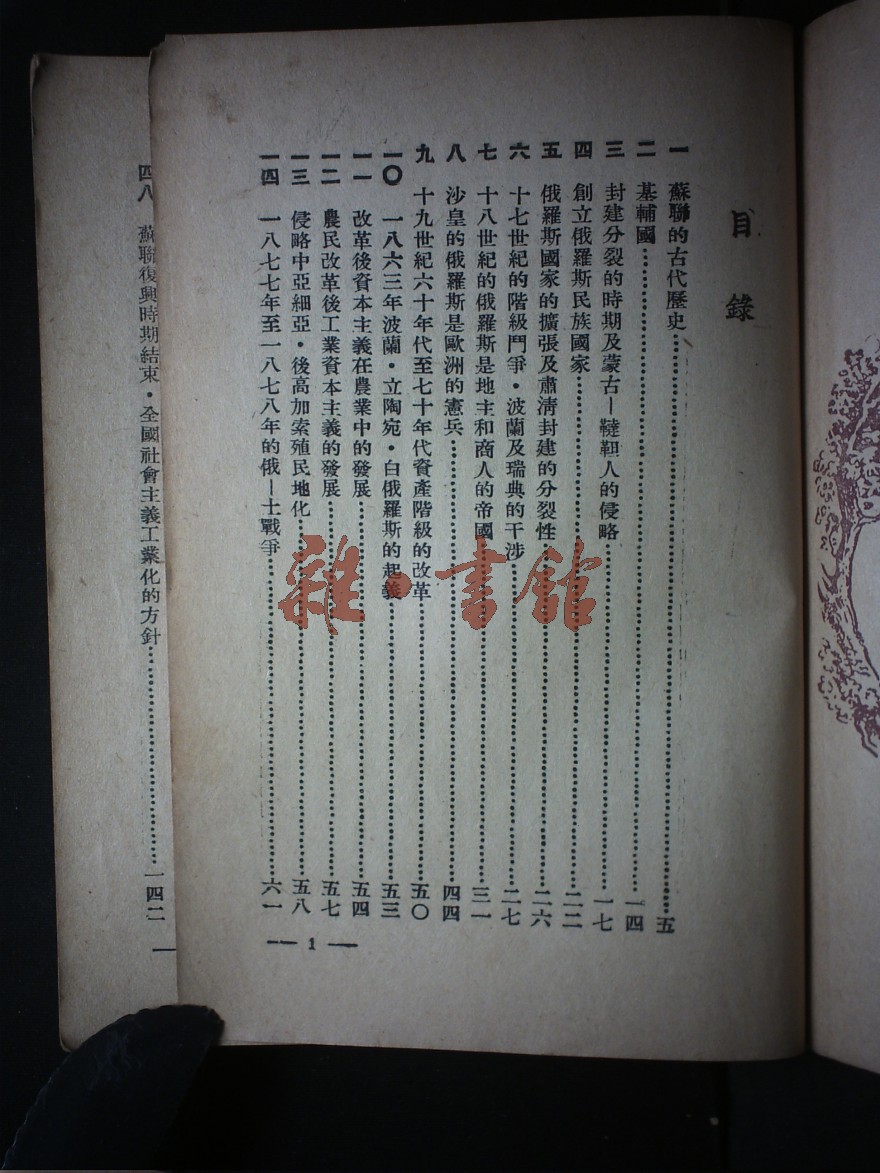 目錄
一 蘇聯的古代歷史……五
二 基輔國……一四
三 封建分裂的時期及蒙古—韃靼人的侵略……一七
四 創立俄羅斯民族國家……二二
五 俄羅斯國家的擴張及肅清封建的分裂性……二六
六 十七世紀的階級鬥爭・波蘭及瑞典的干涉……二七
七 十八世紀的俄羅斯是地主和商人的帝國……三一
八 沙皇的俄羅斯是歐洲的憲兵……四四
九 十九世紀六十年代至七十年代資產階級的改革……五〇
一〇 一八六三年波蘭・立陶宛・白俄羅斯的起義……五三
一一 改革後資本主義在農業中的發展……五四
一二 農民改革後工業資本主義的發展……五七
一三 侵略中亞細亞・後高加索殖民地化……五八
一四 一八七七年至一八七八年的俄—土戰爭……六一
— 1 —
四八 蘇聯復興時期結束・全國社會主義工業化的方針……一四二
雜・書館